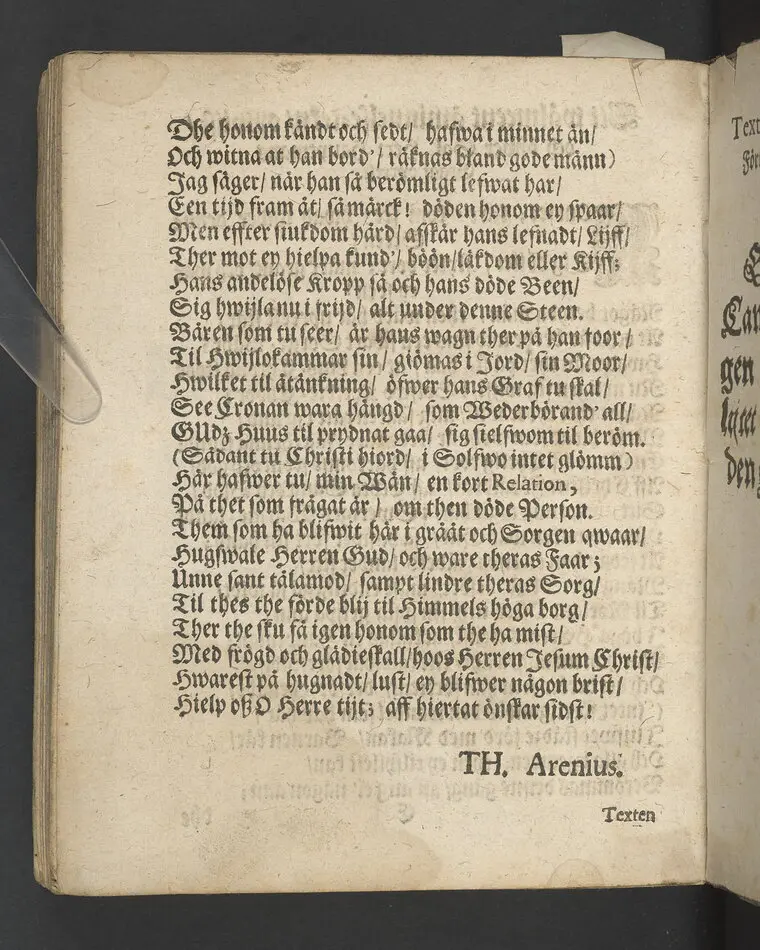 Dhe honom kändt och sedt/ hafwa i minnet än/
Och witna at han bord'/ räknas bland gode männ)
Jag säger/ när han så berömligt lefwat har/
Een tijd fram åt/ så märck! döden honom ey spaar/
Men effter siukdom hård/ afskär hans lefnadt/ Lijff/
Ther mot ey hielpa kund'/ böön/läkdom eller Kijff;
Hans andelöse Kropp så och hans döde Been/
Sig hwijla nu i frijd/ alt under denne Steen.
Bären som tu seer/ är hans wagn ther på han foor/
Til Hwijlokammar sin/ giömas i Jord/ sin Moor/
Hwilket til åtänkning/ öfwer hans Graf tu skal/
See Cronan wara hängd/ som Wederbörand' all/
GUdz Huus til prydnat gaa/ sig sielfwom til beröm.
(Sådant tu Christi hiord/ i Solfwo intet glömm)
Här hafwer tu/ min Wän/ en kort Relation,
På thet som frågat är/ om then döde Person.
Them som ha blifwit här i gråat och Sorgen qwaar/
Hugswale Herren Gud/ och ware theras Faar;
Unne sant tålamod/ sampt lindre theras Sorg/
Til thes the förde blij til Himmels höga borg/
Ther the sku få igen honom som the ha mist/
Med frögd och glädieskall/hoos Herren Jesum Christ/
Hwarest på hugnadt/ lust/ ey blifwer någon brist/
Hielp oß O Herre tijt; aff hiertat önskar sidst!
TH. Arenius.
Texten
Text
gen